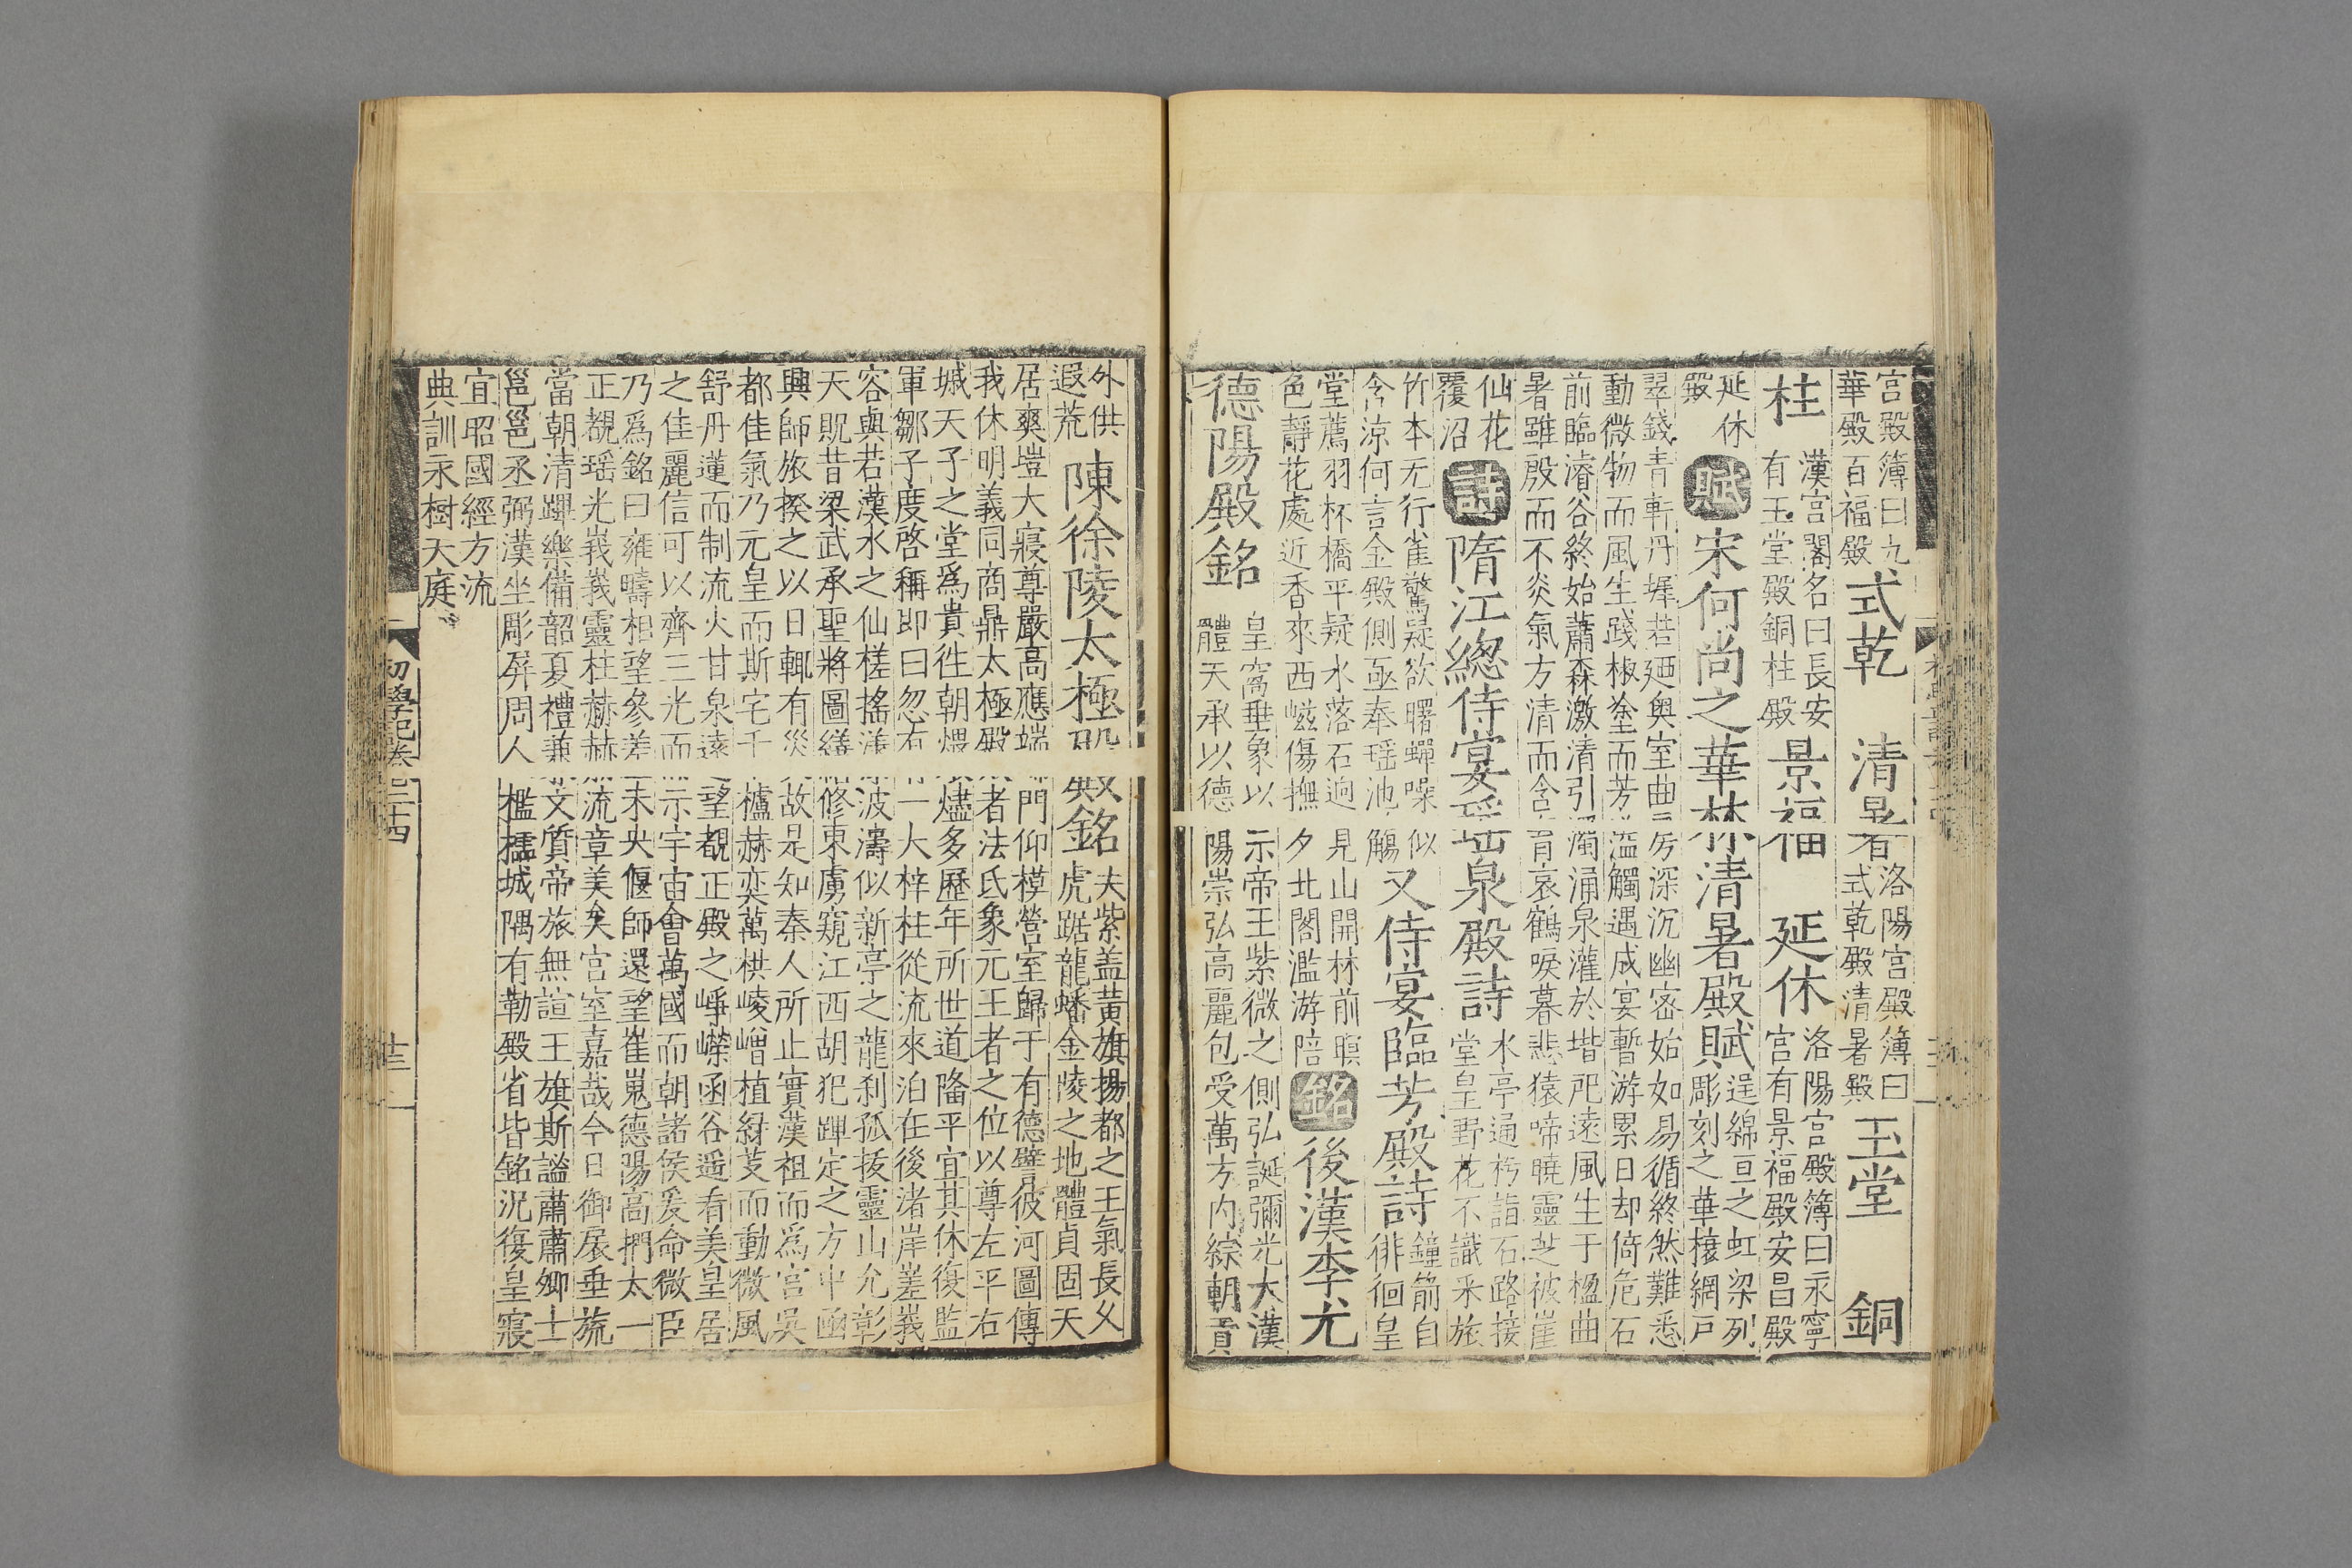 宮殿簿曰九華殿百福殿 式乾 清暑 洛陽宮殿簿曰式乾殿清暑殿 玉堂 銅
柱 漢宮閣名曰長安有玉堂殿銅柱殿 景福 延休 洛陽宮殿簿曰永寧宮有景福殿安昌殿
延休殿 賦 宋何尚之華林清暑殿賦 逞綿亘之虹梁列彫刻之華榱網戶
翠錢青軒丹墀若廼奧室曲房深沉幽密始如易循終然難悉
動微物而風生踐椒塗而芳溢觸遇成宴暫游累日却倚危石
前臨濬谷終始蕭森激清引濁涌泉灌於堦戺遠風生于楹曲
暑雖殷而不炎氣方清而含育哀鶴唳暮悲猿啼曉靈芝被崖
仙花覆沼 詩 隋江總侍宴瑤泉殿詩 水亭通枍詣石路接堂皇野花不識采旅
竹本无行雀驚疑欲曙蟬噪似含涼何言金殿側亟奉瑤池觴 又侍宴臨芳殿詩 鐘箭自徘徊皇
堂薦羽杯橋平疑水落石迥見山開林前暝色靜花處近香來西嵫傷撫夕北閣濫游陪 銘 後漢李尤
德陽殿銘 皇穹垂象以示帝王紫微之側弘誕彌光大漢體天承以德陽崇弘高麗包受萬方內綜朝貢
外供遐荒 陳徐陵太極殿銘 夫紫盖黃旗揚都之王氣長久虎踞龍蟠金陵之地體貞固天
居爽塏大寢尊嚴高應端門仰模營室歸于有德譬彼河圖傳
我休明義同商鼎太極殿者法氐象元王者之位以尊左平右
墄天子之堂爲貴徃朝煨燼多歷年所世道隆平宜其休復監
軍鄒子度啓稱即日忽有一大梓柱從流來泊在後渚岸嵳峩
容與若漢水之仙槎搖漾波濤似新亭之龍刹孤拔靈山允彰
天貺昔梁武承聖將圖繕修東虜窺江西胡犯蹕定之方中亟
興師旅揆之以日輒有災故是知秦人所止實漢祖而爲宮吳
都佳氣乃元皇而斯宅千櫨赫奕萬栱崚嶒植緑芰而動微風
舒丹蓮而制流火甘泉遠望覩正殿之崢嶸函谷遥看美皇居
之佳麗信可以齊三光而示宇宙會萬國而朝諸侯爰命微臣
乃爲銘曰雍疇相望參差未央偃師還望崔嵬德陽高捫太一
正覩瑤光峩峩靈柱赫赫流章美矣宮室嘉哉今日御扆垂旒
當朝清蹕樂備韶夏禮兼文質帝旅無諠王旗斯謐肅肅卿士
邕邕丞弼漢坐彫屏周人檻櫺城隅有勒殿省皆銘況復皇寢
宜昭國經方流
典訓永樹天庭
初學記卷二十四
廿三